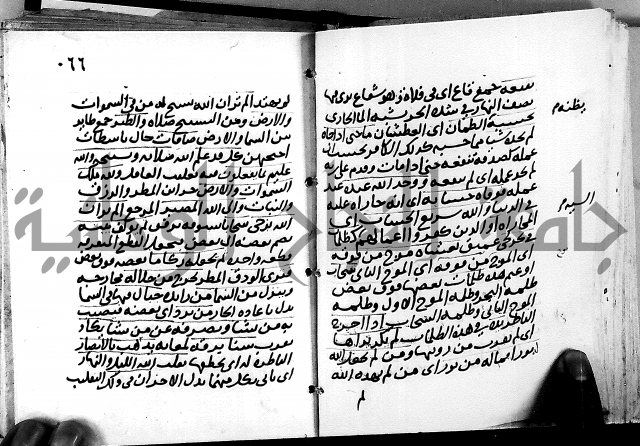 بقيعة جمع قاع اي في فلاة وهو شعاع يرى فيها
نصف النهار في شدة الحر يشبه الماء الجاري
يحسبه الظمان اي العطشان ماء حتى اذا جاءه
لم يجده شيئا مما حسبه كذلك الكافر يحسب ان
عمله كصدقة تنفعه حتى اذا مات وقدم على ربه
لم يجد عمله اي لم ينفعه ووجد الله عنده عند
عمله فوفاه حسابه اي انه جازاه عليه
في الدنيا والله سريع الحساب اي
المجازاة او الذين كفروا اعمالهم كظلمات
في بحر لجي عميق يغشاه موج من فوقه
اي الموج من فوقه اي الموج الثاني سحاب
اي غيم هذه ظلمات بعضها فوق بعض
ظلمة البحر وظلمة الموج الاول وظلمة
الموج الثاني وظلمة السحاب اذا اخرج
الناظر يده في هذه الظلمات لم يكد يراها
اي لم يقرب من رويتها ومن لم يجعل الله
له نورا فما له من نور اي من لم يهده الله
لم
يظنه م
٠٦٦
لم يهتد الم تر ان الله يسبح له من في السموات
والارض ومن التسبيح صلاة والطير جمع طاير
بين السما والارض صافات حال باسطات
اجنحتهن كل قد علم الله صلاته وتسبيحه والله
عليم بما يفعلون فيه تغليب العاقل ولله ملك
السموات والارض خزاين المطر والرزق
والنبات والى الله المصير المرجع الم تر ان
الله يزجي سحابا يسوقه برفق ثم يولف بينه
يضم بعضه الى بعض فيجعل القطع المتفرقة
قطعة واحدة ثم يجعله ركاما بعضه فوق بعض
فترى الودق المطر يخرج من خلاله مخارجه
وينزل من السما من زايدة جبال فيها في السما
بدل باعادة الجار من برد اي بعضه فيصيب
به من يشا ويصرفه عن من يشا يكاد
يقرب سنا برقه لمعانه يذهب بالابصار
الناظرة له اي يخطفها يقلب الله الليل والنهار
اي ياتي بكل منهما بدل الاخر ان في ذلك التقليب